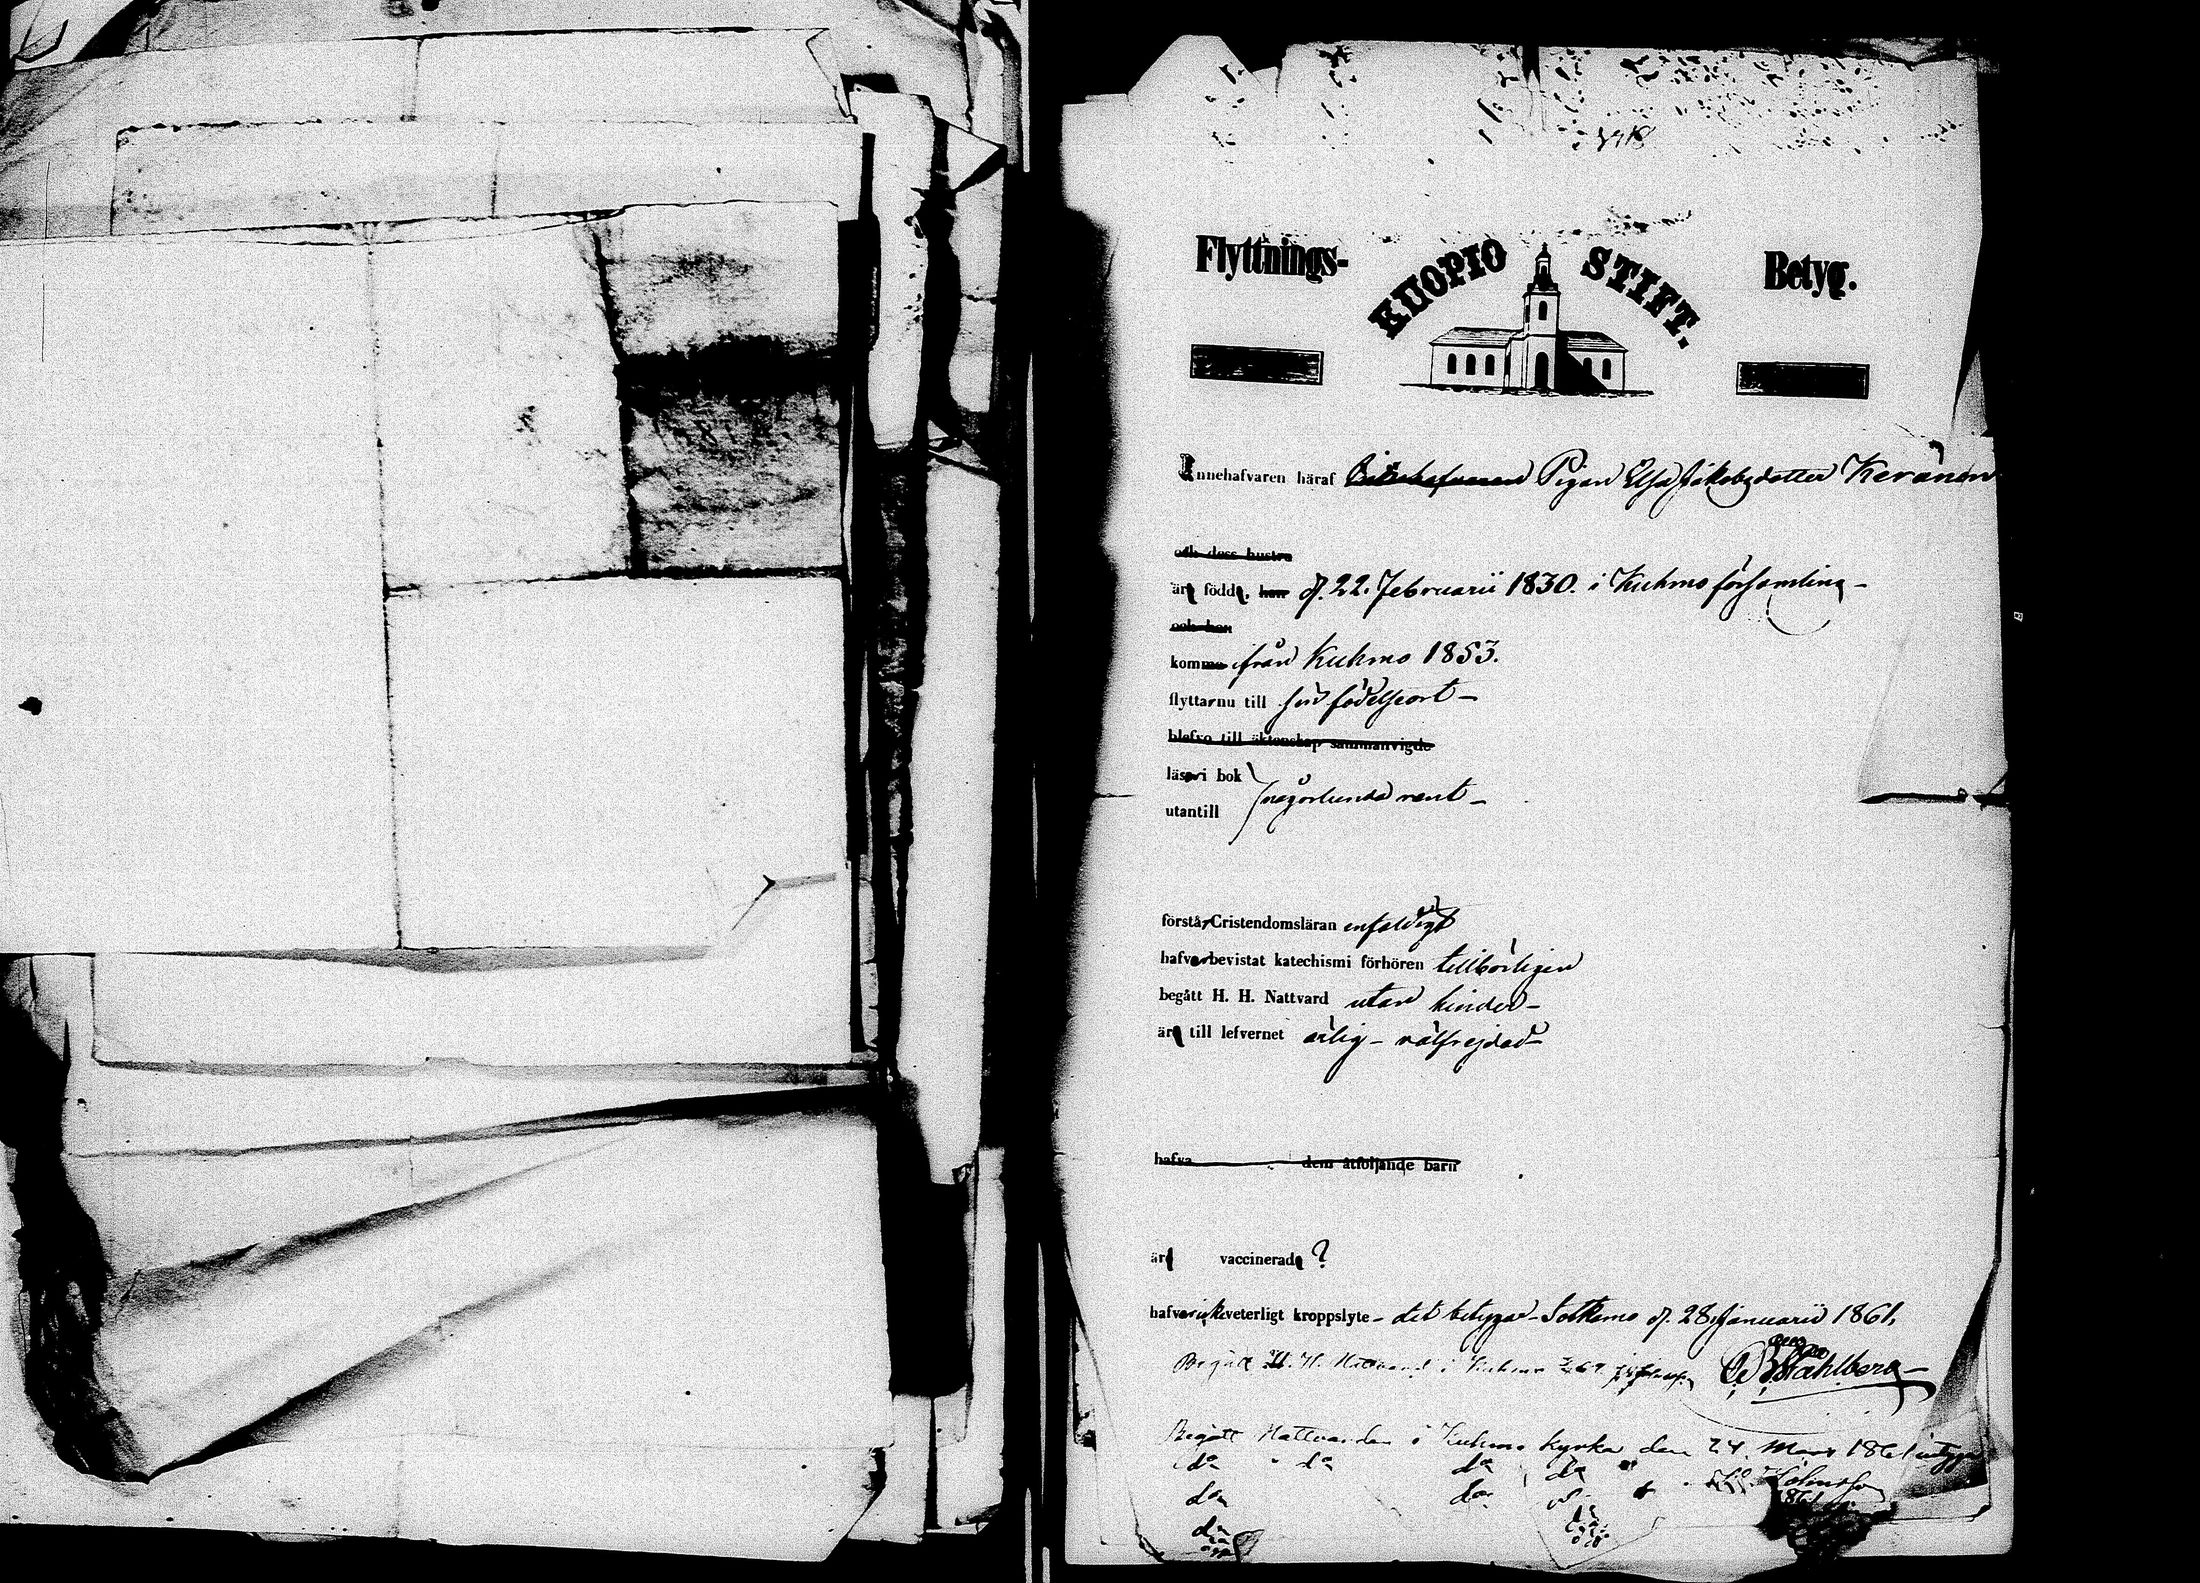 Flyttnings- KUOPIO STIFT. Betyg.
Innehafvaren häraf Pigan Elsa Jakobsdotter Keränen
och dess hustru
äro födde, han d. 22. Februarii 1830. i Kuhmo församling -
och hon
komme från Kuhmo 1853.
flyttarnu till sin födelseort -
blefvo till äktenskap sammanvigde
läser i bok
någorlunda rent -
utantill
förstår Cristendomsläran enfaldigt
hafver bevistat katechismi förhören tillbörligen
begått H. H. Nattvard utan hinder -
är till lefvernet ärlig - välfrejdad -
hafva dem åtföljande barn
är vaccinerad ?
hafver icke veterligt kroppslyte - det betygar - Sotkamo d. 28 Januarii 1861.
Begått H. H. Nattvard i Kuhmo
Stahlberg
Begått Nattvarden i Kuhmo kyrka den 24 Mars 1861 intygar
do do do do
do do
do